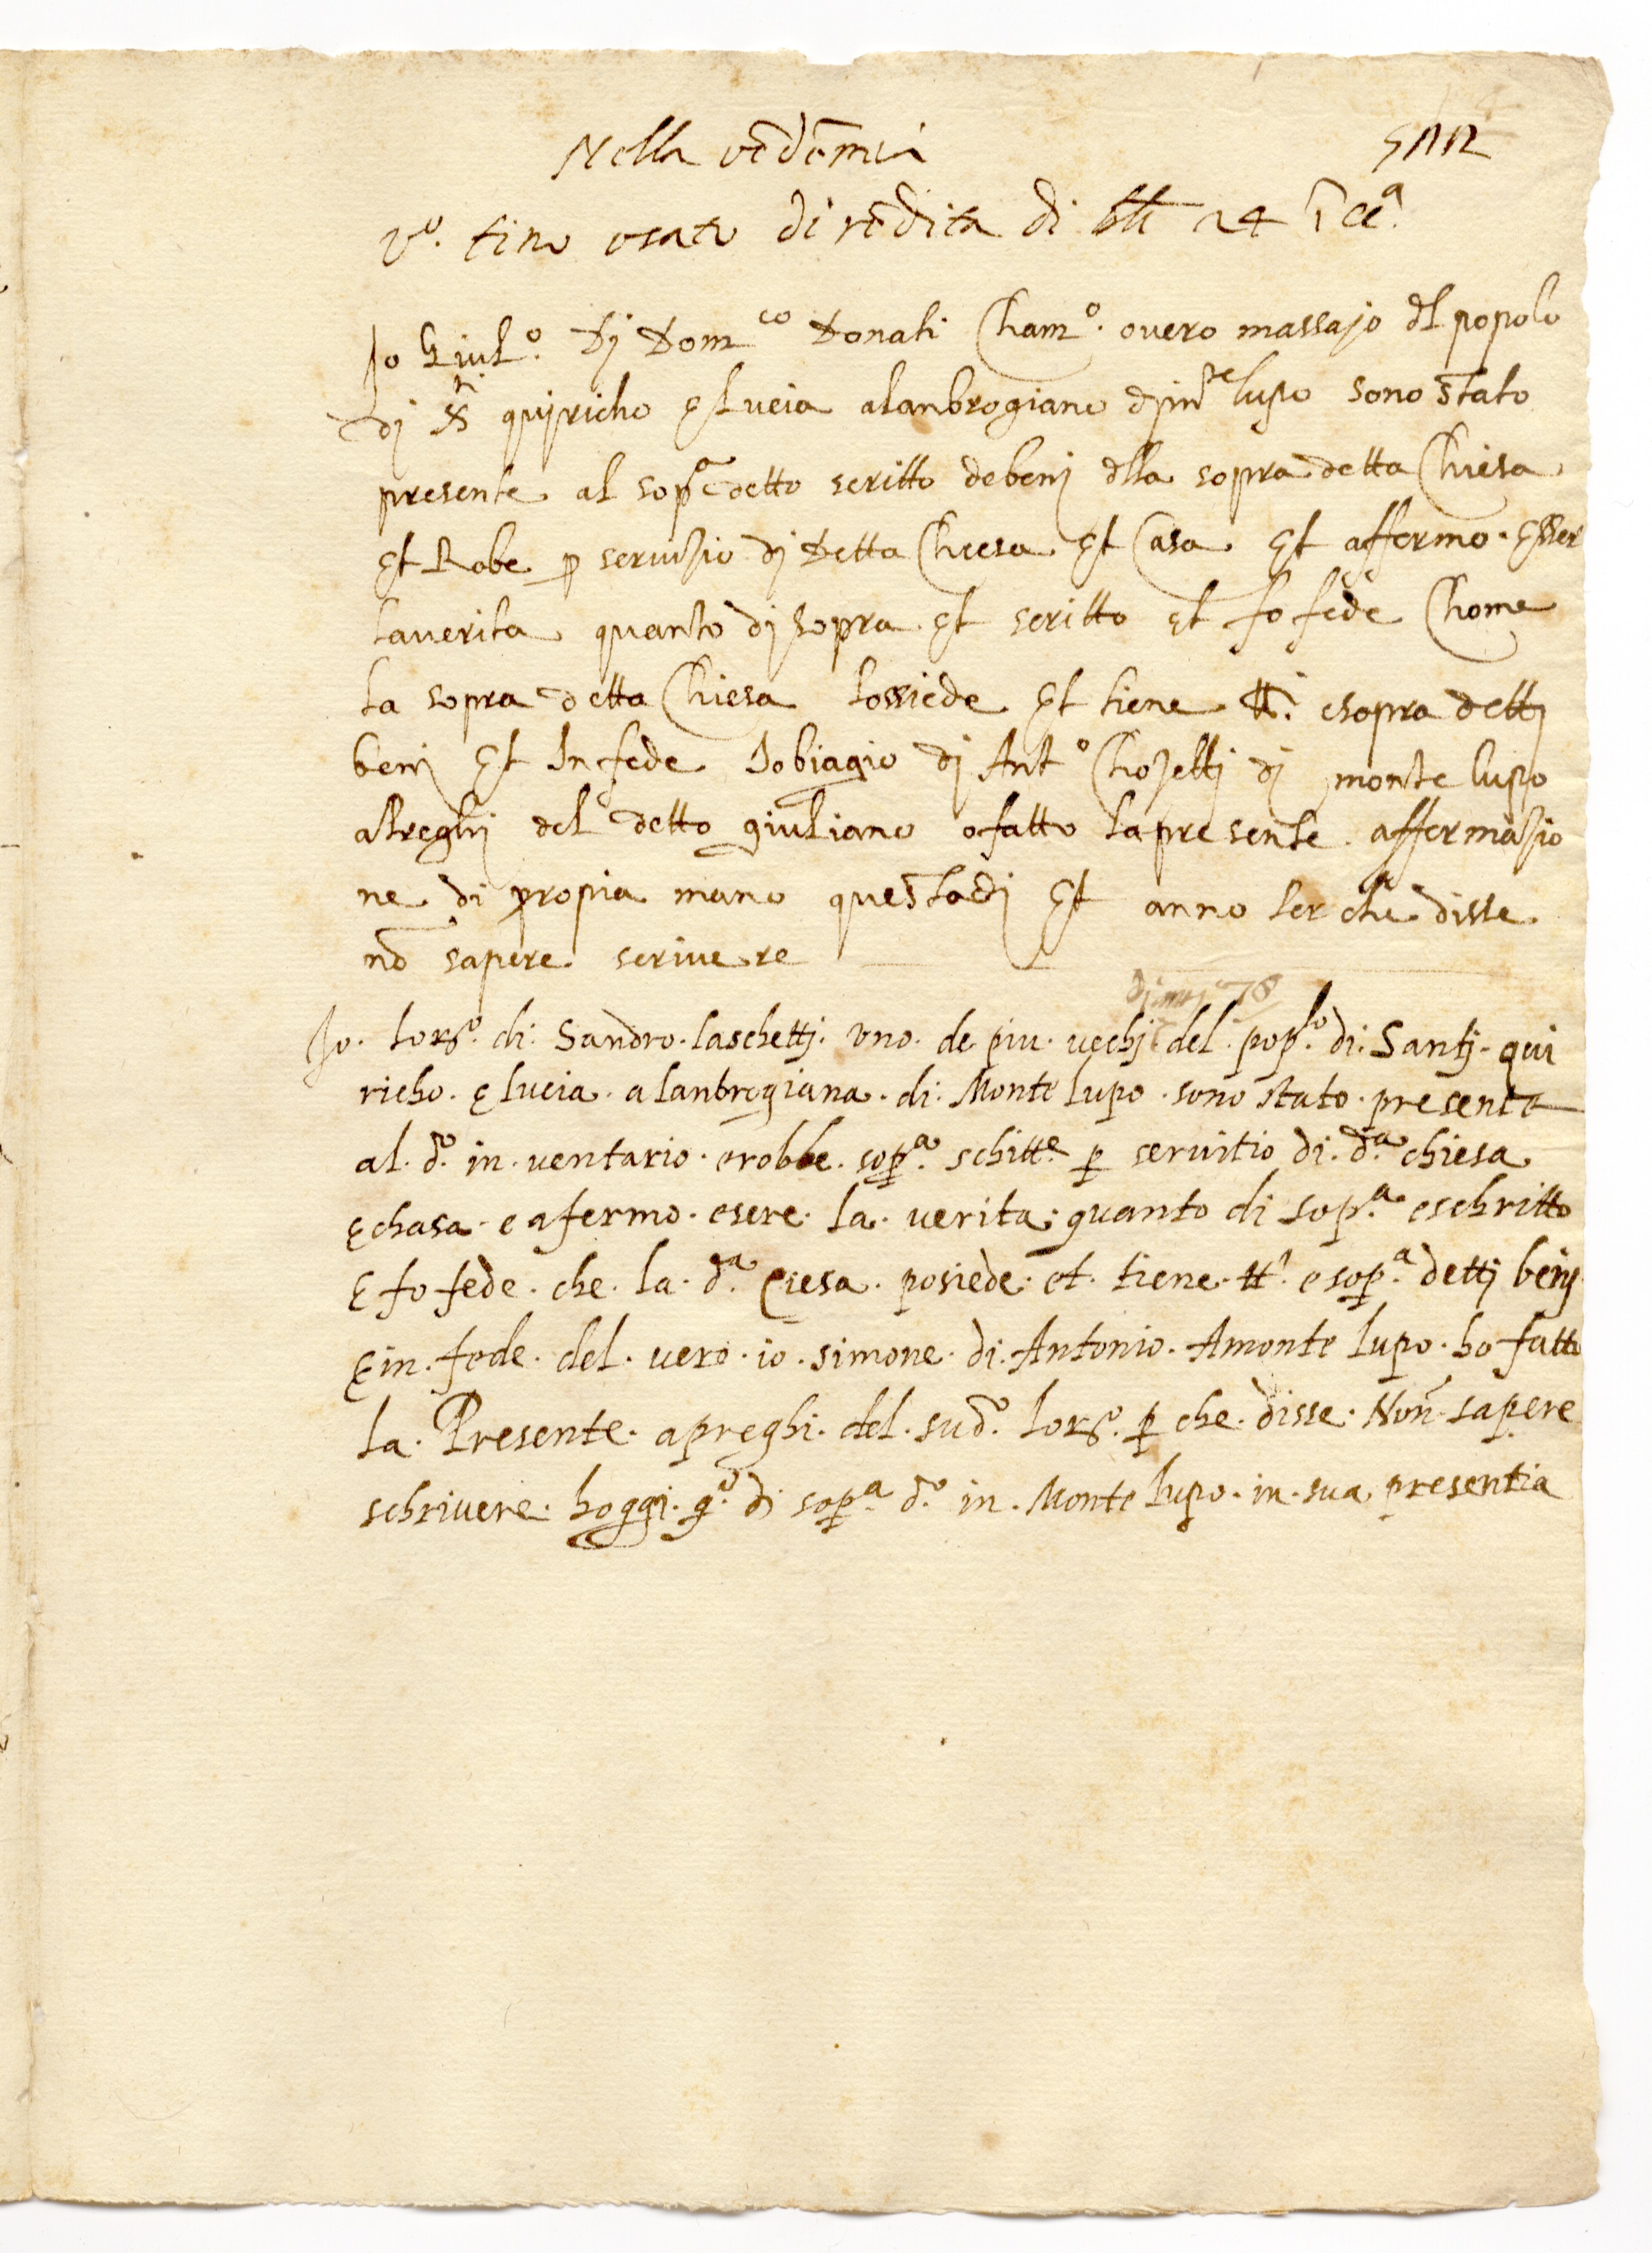 Nella vẽdẽmia
Vº. tino usato di rẽdita di btt 24 ĩ cᵃ
Io Giulº. Dj Domᶜᵒ Donati Chamº. overo massajo dl popolo
dj Sᵗⁱ qujricho Et Lucia alanbrogiano dj mᵗᵉ lupo sono stato
presente al sopᵃ detto scritto de benj dlla sopra detta Chiesa
Et Robe p servizio dj Detta Chiesa Et Casa Et affermo. Esser
la verita quanto dj sopra Et scritto Et fo fede Chome
la sopra detta Chiesa possiede Et tiene ttⁱ. e sopra dettj
benj Et In fede Io biagio dj Antº Chozettj dj monte lupo
a preghj del detto giuliano o fatto la presente affermazio
ne di propia mano questo dj Et anno per che disse
nõ sapere scrivere
Io. Lorzº. di. Sandro. Laschettj. uno. de piu. vechj del. popˡº. di. Santj. qui
richo. E lucia. a lanbrogiana. di. Monte lupo. sono stato. presente
al. dº. in. ventario. e robbe. sopᵃ. schittᵉ p servitio di. dᵃ. chiesa
E chasa. e afermo. esere. la. verita. quanto di sopᵃ. e schritto
E fo fede. che. la. dᵃ. Ciesa. posiede. et. tiene. ttⁱ. e sopᵃ. dettj benj
E in. fede. del. vero. io. simone. di. Antonio. A monte lupo. ho fatto
la. Presente. a preghi. del. sudº. Lorzº. p che. disse. Non. sapere
schrivere. hoggi. qº. dj sopᵃ. dº. in. Monte lupo. in. sua presentia